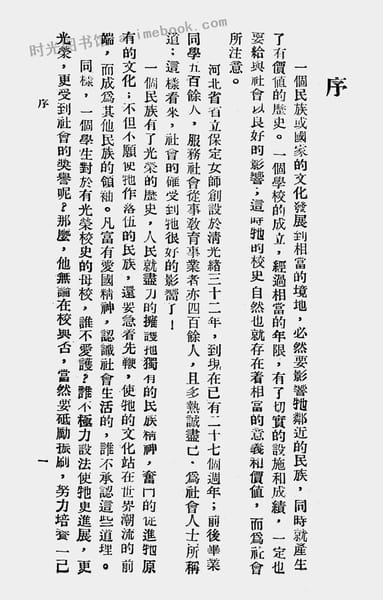 时光图书馆 our.timebook.com
序
一個民族或國家的文化發展到相當的境地，必然要影響牠鄰近的民族，同時就產生
了有價値的歷史。一個學校的成立，經過相當的年限，有了切實的設施和成績，一定也
要給與社會以良好的影響；這時牠的校史自然也就存在着相當的意義和價値，而爲社會
所注意。
河北省省立保定女師創設於淸光緒三十二年，到現在已有二十七個週年；前後畢業
同學五百餘人，服務社會從事敎育事業者亦四百餘人，且多熱誠盡己，爲社會人士所稱
道；這樣看來，社會的確受到牠很好的影響了！
一個民族有了光榮的歷史，人民就盡力的擁護牠獨有的民族精神，奮鬥的促進牠原
有的文化；不但不願使牠作落伍的民族，還要急着先鞭，使牠的文化站在世界潮流的前
端，而成爲其他民族的領袖。凡富有愛國精神，認識社會生活的，誰不承認這些道理。
同樣，一個學生對於有光榮校史的母校，誰不愛護？誰不極力設法使牠史進展，更
光榮，更受到社會的奬譽呢？那麼，他無論在校與否，當然要砥勵振刷，努力培養一己
序
一